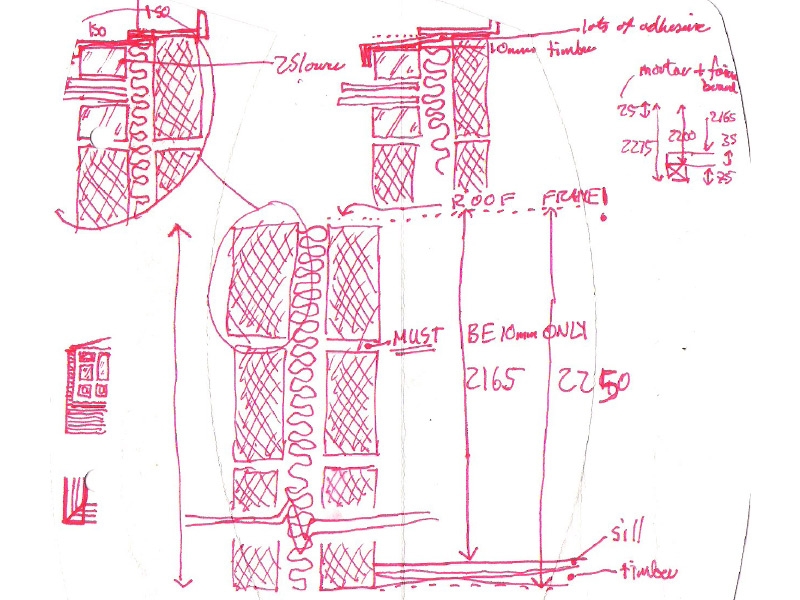 150
150
lots of adhesive
10mm timber
mortar +
board
25
2165
2200
35
2275
75
ROOF FRAME!
MUST BE 10mm ONLY
2165 2250
sill
timber